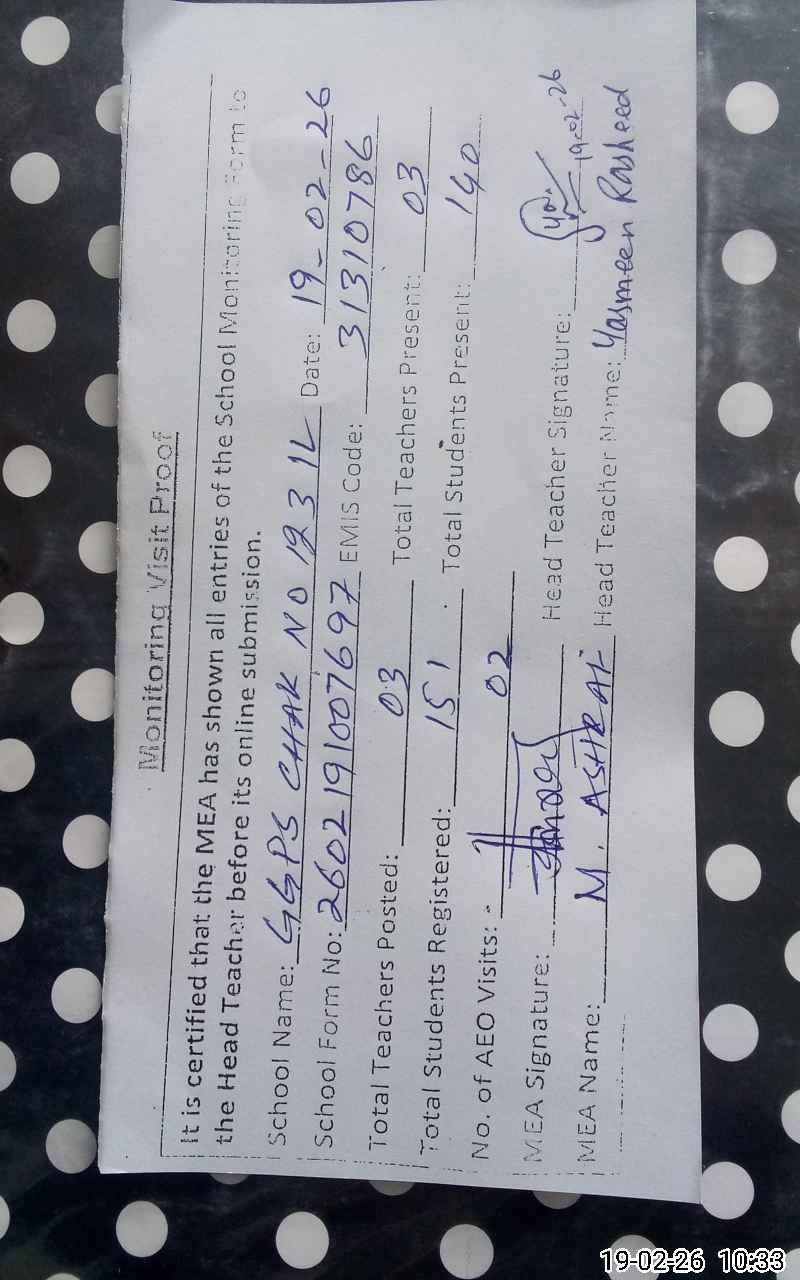 Monitoring Visit Proof
It is certified that the MEA has shown all entries of the School Monitoring Form to
the Head Teacher before its online submission.
School Name: GGPS CHAK NO 123 1L Date: 19-02-26
School Form No: 2602191007697 EMIS Code: 31310786
Total Teachers Posted: 03 Total Teachers Present: 03
Total Students Registered: 151 Total Students Present: 140
No. of AEO Visits: 02
MEA Signature: Head Teacher Signature: 19-02-26
MEA Name: M. ASHRAF Head Teacher Name: Yasmeen Rasheed
19-02-26 10:33